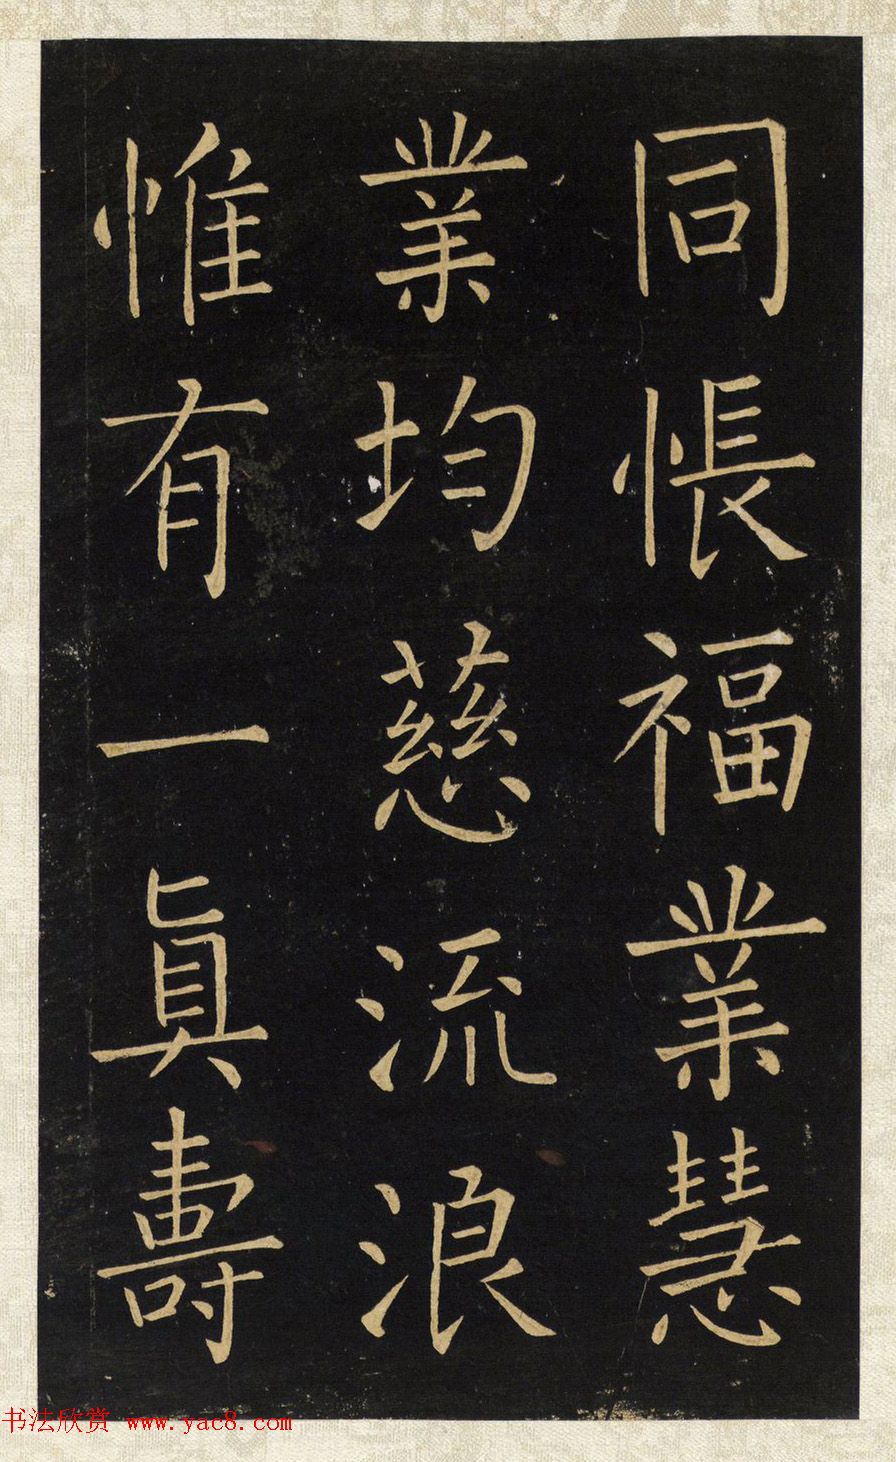 同悵福業慧
業均慈流浪
惟有一眞壽
书法欣赏 www.yac8.com